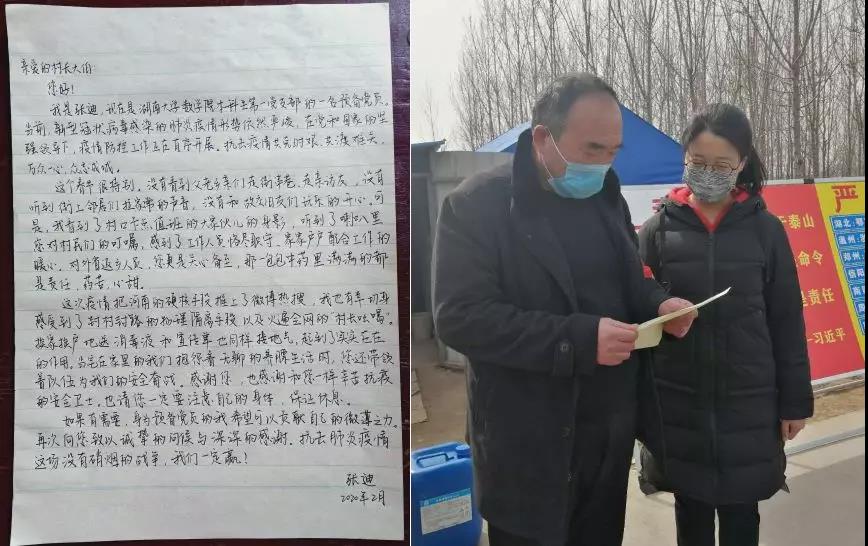 亲爱的村长大伯:
您好!
我是张迪,现在是湖南大学数学院本科生第一党支部的一名预备党员。
当前,新型冠状病毒感染的肺炎疫情形势依然严峻,在党和国家的坚
强领导下,疫情防控工作正在有序开展。抗击疫情共克时艰,共渡难关,
万众一心,众志成城。
这个春节很特别,没有看到父老乡亲们走街串巷,走亲访友,没有
听到街上邻居们拉家常的声音,没有和故友旧友们玩乐的开心。可
是,我看到了村口卡点值班的大家伙儿的身影,听到了喇叭里
您对村民们的叮嘱,感到了工作人员恪尽职守、家家户户配合工作的
暖心。对外省返乡人员,您更是关心备至,那一包包中药里满满的都
是责任,药苦,心甜。
这次疫情把河南的硬核手段推上了微博热搜,我也有幸切身
感受到了封村封路的物理隔离手段以及火遍全网的"村长吆喝"。
挨家挨户地送消毒液和宣传单也同样接地气,起到了实实在在
的作用。当宅在家里的我们抱怨着无聊的养膘生活时,您还带领
着队伍为我们的安全奋战。感谢您,也感谢和您一样辛苦抗疫
的安全卫士。也请您一定要注意自己的身体,保证休息。
如果有需要,身为预备党员的我希望可以贡献自己的微薄之力。
再次向您致以诚挚的问候与深深的感谢。抗击肺炎疫情
这场没有硝烟的战争,我们一定赢!
张迪
2020年2月
于泰山
命令
是责任
习近平
严
湖北:鄂
温州:
郑州:
信阳
南